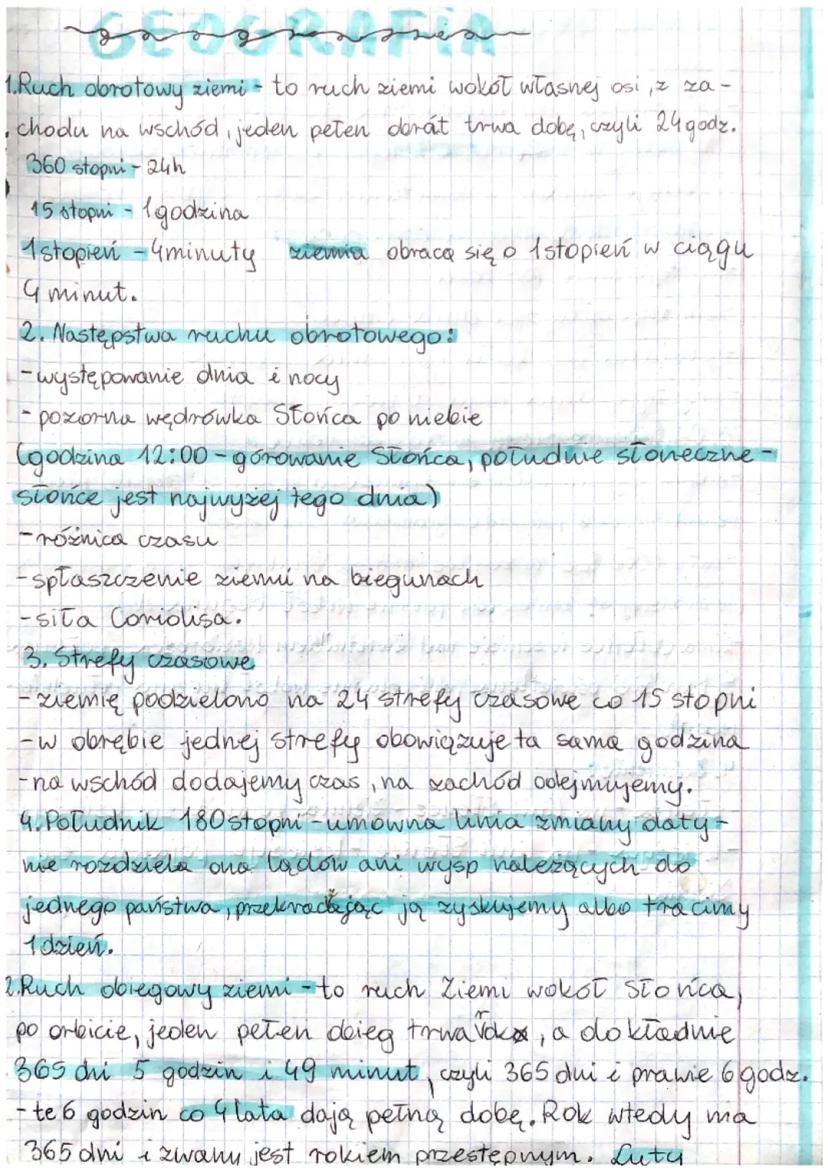 GEOGRAFIA
1.Ruch obrotowy ziemi - to ruch ziemi wokół własnej osi, z za-
chodu na wschód, jeden pełen obrót trwa dobę, czyli 24godz.
360 stopni - 24h
15 stopni - 1godzina
1stopień - 4minuty ziemia obraca się o 1stopień w ciągu
4 minut.
2. Następstwa ruchu obrotowego:
-występowanie dnia i nocy
- pozorna wędrówka Słońca po niebie
(godzina 12:00 - górowanie Słońca, południe słoneczne -
słońce jest najwyżej tego dnia)
- różnica czasu
-spłaszczenie ziemi na biegunach
-siła Coriolisa.
3. Strefy czasowe
- ziemię podzielono na 24 strefy czasowe co 15 stopni
-w obrębie jednej strefy obowiązuje ta sama godzina
-na wschód dodajemy czas, na zachód odejmujemy.
4.Południk 180stopni - umowna linia zmiany daty -
nie rozdziela ona lądów ani wysp należących do
jednego państwa, przekraczając ją zyskujemy albo tracimy
1dzień.
2.Ruch obiegowy ziemi - to ruch Ziemi wokół Słońca,
po orbicie, jeden pełen obieg trwa , a dokładnie
365 dni 5 godzin i 49 minut, czyli 365 dni i prawie 6godz.
- te 6 godzin co 4lata dają pełną dobę. Rok wtedy ma
365 dni i zwany jest rokiem przestępnym. Luty